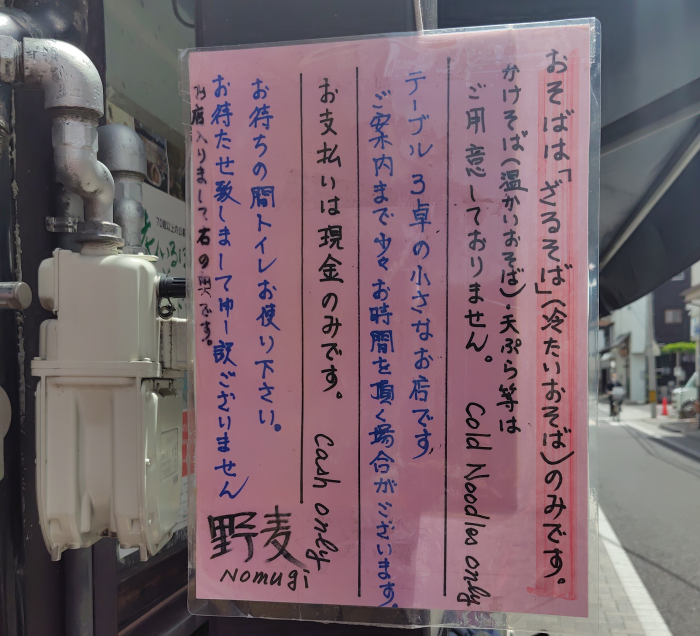 おそばは「ざるそば」(冷たいおそば)のみです。
かけそば(温かいおそば)・天ぷら等は
ご用意しておりません。 Cold Noodles only
テーブル3卓の小さなお店です
ご案内まで少々お時間を頂く場合がございます。
お支払いは現金のみです。 Cash only
お待ちの間トイレお使い下さい。
お待たせ致しまして申し訳ございません
お店入りまして右の奥です。
野麦
Nomugi